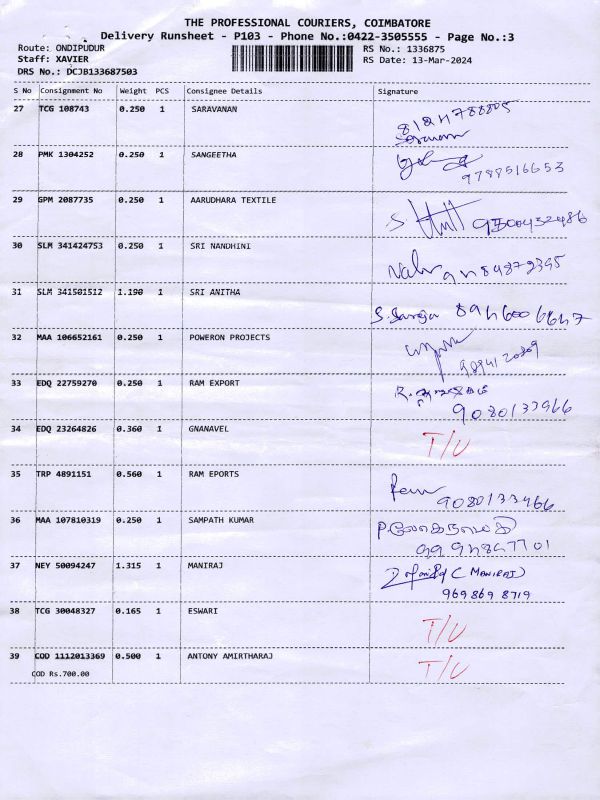 THE PROFESSIONAL COURIERS, COIMBATORE
Delivery Runsheet - P103 - Phone No.:0422-3505555 - Page No.:3
Route: ONDIPUDUR
RS No.: 1336875
Staff: XAVIER
RS Date: 13-Mar-2024
DRS No.: DCJB133687503
S No Consignment No Weight PCS Consignee Details Signature
27 TCG 108743 0.250 1 SARAVANAN
28 PMK 1304252 0.250 1 SANGEETHA
9788516653
29 GPM 2087735 0.250 1 AARUDHARA TEXTILE
30 SLM 341424753 0.250 1 SRI NANDHINI
31 SLM 341501512 1.190 1 SRI ANITHA
32 MAA 106652161 0.250 1 POWERON PROJECTS
33 EDQ 22759270 0.250 1 RAM EXPORT
9080133966
34 EDQ 23264826 0.360 1 GNANAVEL T/U
35 TRP 4891151 0.560 1 RAM EPORTS
9080133466
36 MAA 107810319 0.250 1 SAMPATH KUMAR
37 NEY 50094247 1.315 1 MANIRAJ (MANIRAJ)
969 869 8719
38 TCG 30048327 0.165 1 ESWARI T/U
39 COD 1112013369 0.500 1 ANTONY AMIRTHARAJ T/U
COD Rs.700.00